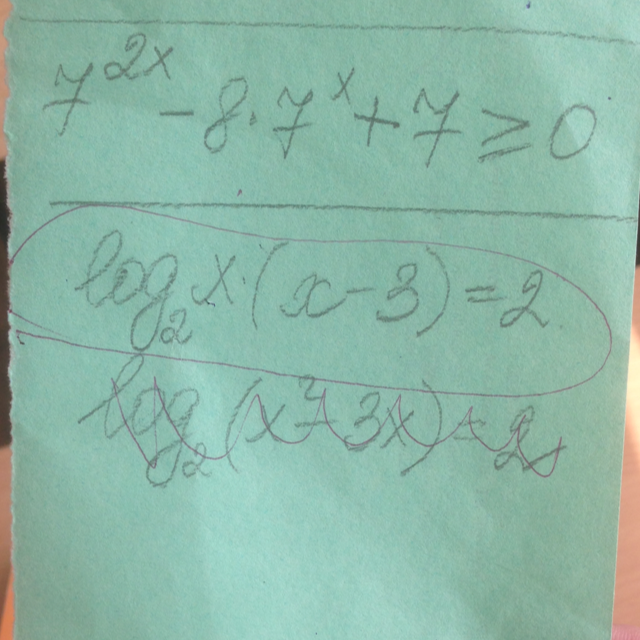 7^{2x} - 8·7^x + 7 ≥ 0
log₂ x·(x-3) = 2
log₂(x²-3x) = 2